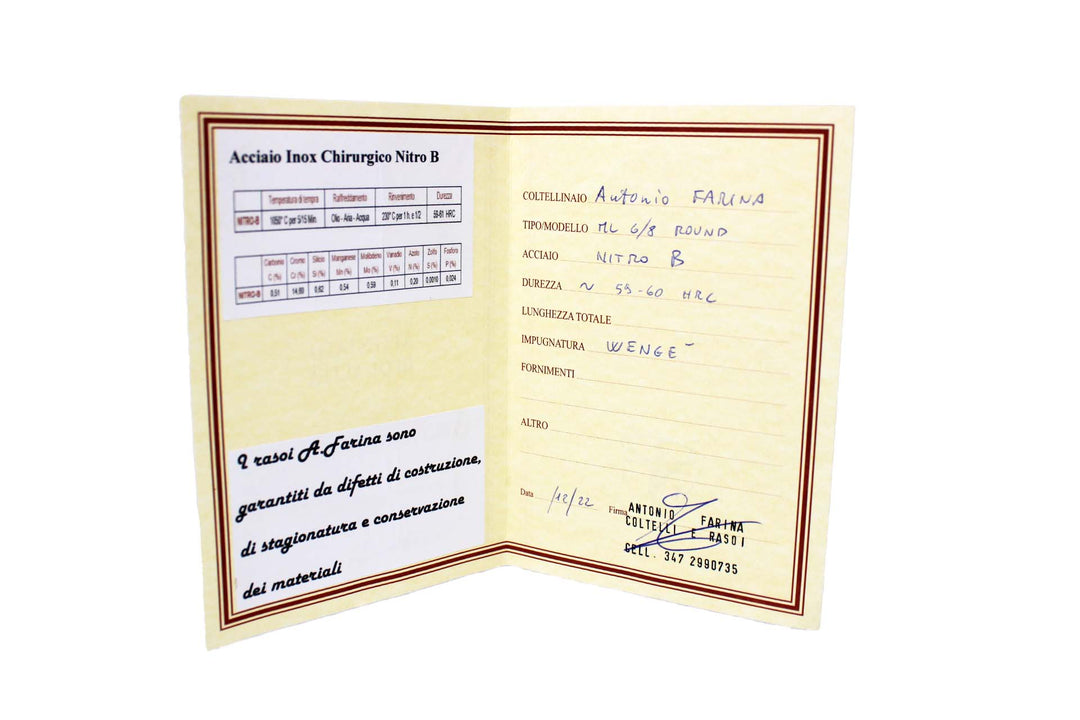 Acciaio Inox Chirurgico Nitro B
Temperatura di tempra Raffreddamento Rinvenimento Durezza
NITRO-B 1050° C per 5/15 Min. Olio - Aria - Acqua 200° C per 1 h. e 1/2 59-61 HRC
Carbonio Cromo Silicio Manganese Molibdeno Vanadio Azoto Zolfo Fosforo
C (%) Cr (%) Si (%) Mn (%) Mo (%) V (%) N (%) S (%) P (%)
NITRO-B 0,51 14,60 0,62 0,54 0.59 0,11 0,20 0,0010 0,024
I rasoi A.Farina sono
garantiti da difetti di costruzione,
di stagionatura e conservazione
dei materiali
COLTELLINAIO Antonio FARINA
TIPO/MODELLO ML 6/8 ROUND
ACCIAIO NITRO B
DUREZZA ~ 59-60 HRC
LUNGHEZZA TOTALE
IMPUGNATURA WENGE'
FORNIMENTI
ALTRO
Data /12/22 Firma
ANTONIO FARINA
COLTELLI E RASOI
CELL. 347 2990735